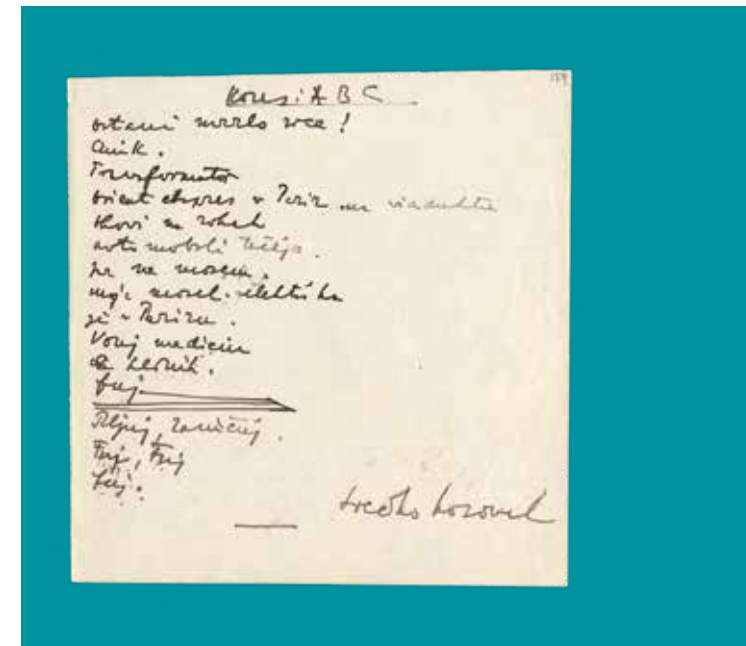 Kons: A B C
ostani mrzlo srce!
Cinik.
Transformator
orient ekspres v Pariz na viaduktu
okovi na rokah
avtomobili tečejo.
jaz ne morem.
moja misel. elektrika
je v Parizu.
Vonj medicin
fuj.
Pljuj, zaničuj.
Fuj, Fuj
fuj.
Srečko Kosovel